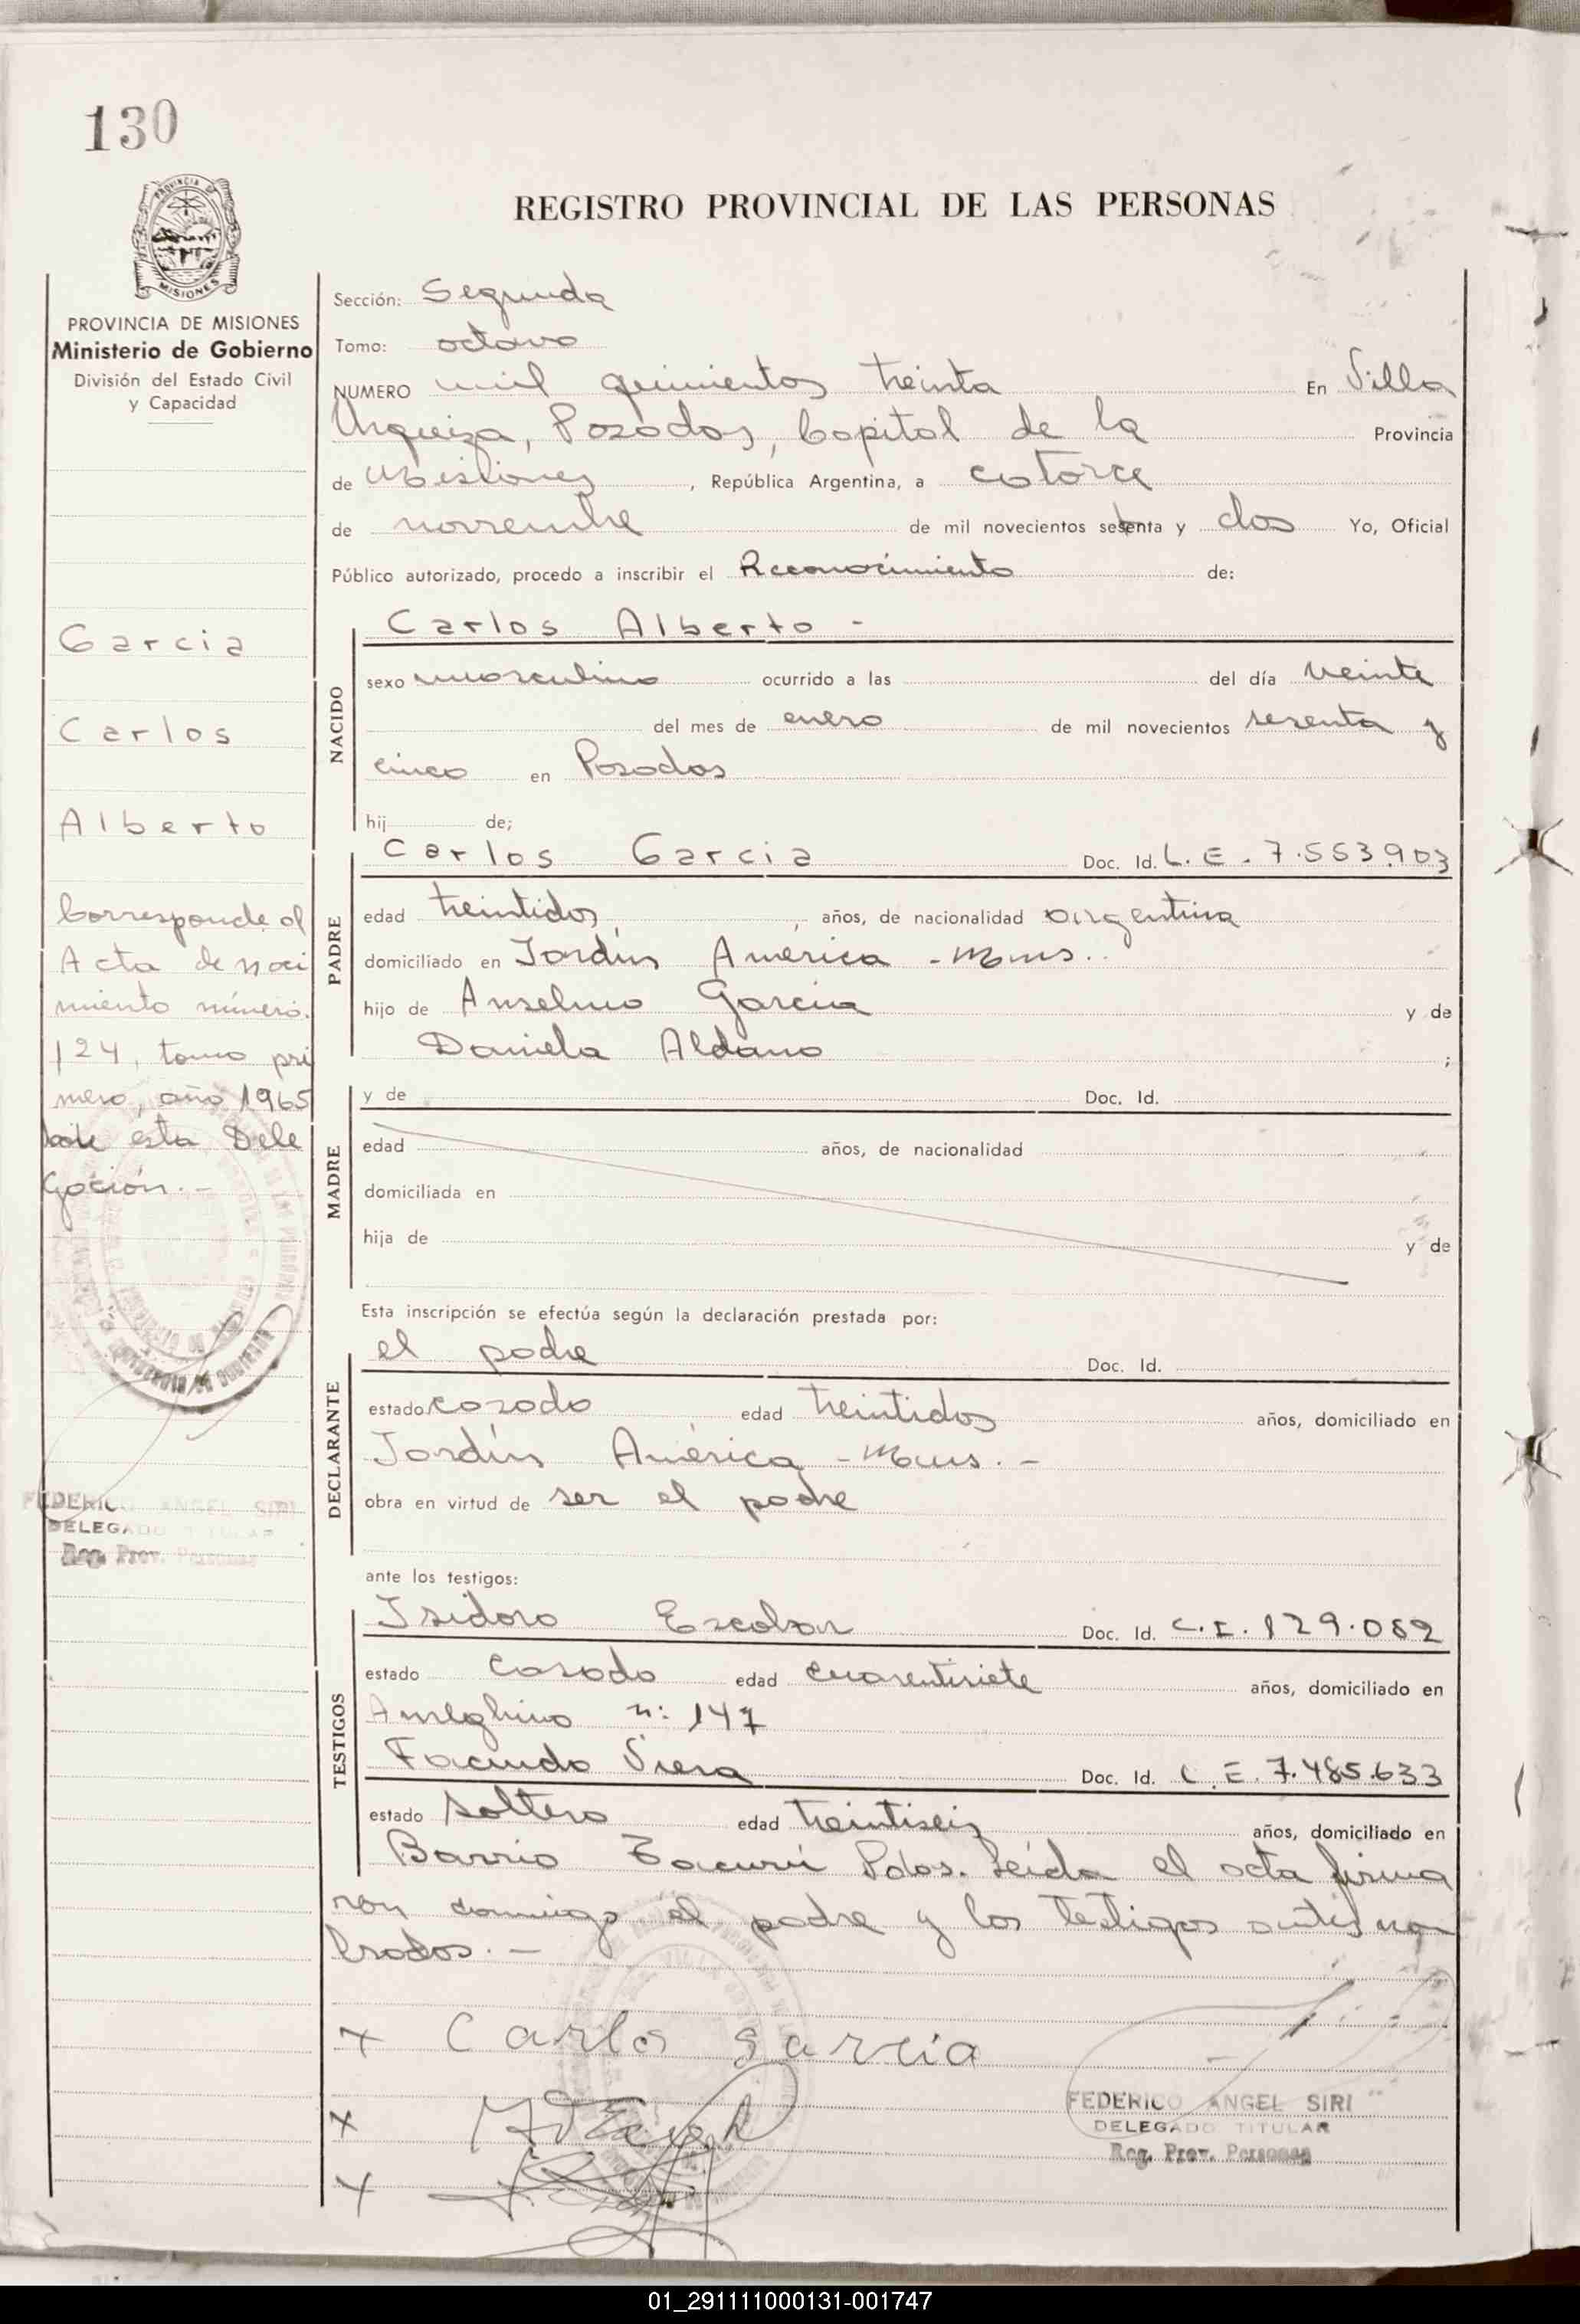 130
REGISTRO PROVINCIAL DE LAS PERSONAS
PROVINCIA DE MISIONES
MISIONES
PROVINCIA DE MISIONES
Ministerio de Gobierno
División del Estado Civil
y Capacidad
Garcia
Carlos
Alberto
Corresponde al
Acta de naci
miento número
124, tomo pri
mero, año 1965
de esta Dele
gación.-
FEDERICO ANGEL SIRI
DELEGADO TITULAR
Reg. Prov. Personas
Sección: Segunda
Tomo: octavo
NUMERO mil quinientos treinta En Villa
Urquiza, Posadas, Capital de la Provincia
de Misiones, República Argentina, a catorce
de noviembre de mil novecientos setenta y dos Yo, Oficial
Público autorizado, procedo a inscribir el Reconocimiento de:
Carlos Alberto -
NACIDO
sexo masculino ocurrido a las del día veinte
del mes de enero de mil novecientos sesenta y
cinco en Posadas
hij de;
PADRE
Carlos Garcia Doc. Id. L.E. 7.553.903
edad treintidos, años, de nacionalidad argentina
domiciliado en Jardín América - Mnes..
hijo de Anselmo Garcia y de
Daniela Aldano ;
MADRE
y de Doc. Id.
edad años, de nacionalidad
domiciliada en
hija de y de
Esta inscripción se efectúa según la declaración prestada por:
DECLARANTE
el padre Doc. Id.
estado casado edad treintidos años, domiciliado en
Jardín América - Mnes. -
obra en virtud de ser el padre
ante los testigos:
TESTIGOS
Isidoro Escobar Doc. Id. C.I. 129.082
estado casado edad cuarentisiete años, domiciliado en
Ameghino n: 147
Facundo Viera Doc. Id. L.E. 7.485.633
estado soltero edad treintiseis años, domiciliado en
Barrio Tacurú Pdas. Leída el acta firma
ron conmigo el padre y los testigos antes nom
brados. -
x Carlos garcía
x
x
FEDERICO ANGEL SIRI
DELEGADO TITULAR
Reg. Prov. Personas
01_291111000131-001747